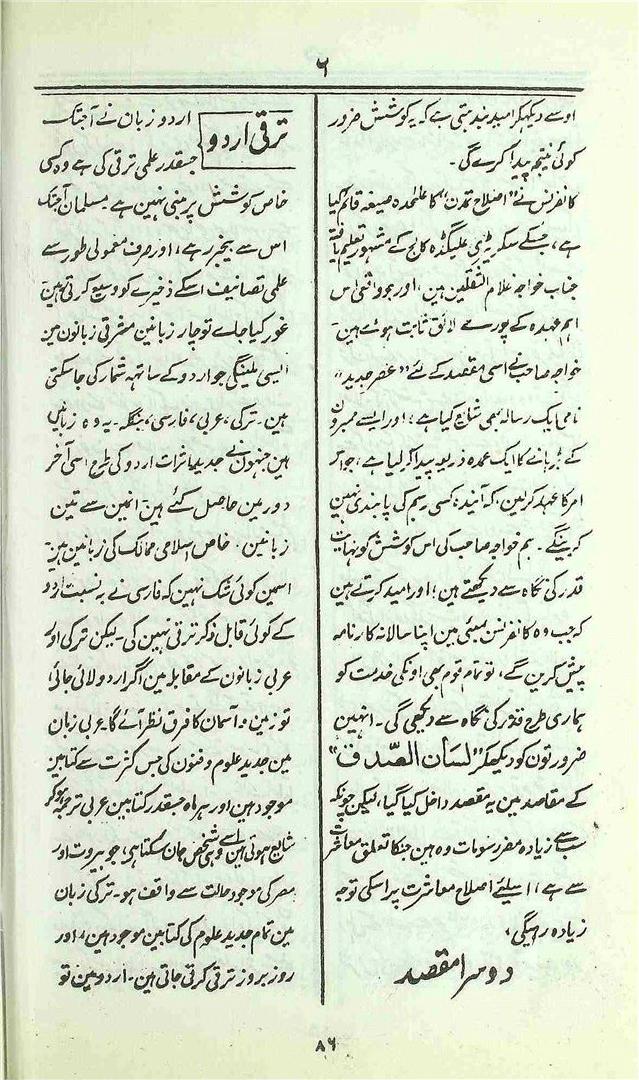 ۶
اوسے دیکھکر امید بندہتی ہے کہ یہ کوشش ضرور
کوئی نتیجہ پیدا کرے گی۔
کانفرنس نے ”اصلاح تمدن“ کا علحدہ صیغہ قائم کیا
ہے، جسکے سکریٹری علیگڈہ کالج کے مشہور تعلیم یافتہ
جناب خواجہ غلام الثقلین ہین، اور جو واقعی اس
اہم عہدہ کے پورے لائق ثابت ہوئے ہین۔
خواجہ صاحب نے اسی مقصد کے لئے ”عصر جدید“
نامی ایک رسالہ بھی شایع کیا ہے؛ اور ایسے ممبرون
کے بڑہانے کا ایک عمدہ ذریعہ پیدا کر لیا ہے، جو اس
امر کا عہد کرلین، کہ آیندہ کسی رسم کی پابندی نہین
کرینگے۔ ہم خواجہ صاحب کی اس کوشش کو نہایت
قدر کی نگاہ سے دیکھتے ہین؛ اور امید کرتے ہین
کہ جب وہ کانفرنس بمبئی مین اپنا سالانہ کارنامہ
پیش کرین گے، تو تمام قوم بھی اونکی خدمت کو
ہماری طرح قدر کی نگاہ سے دیکھی گی۔ انہین
ضرورتون کو دیکھکر ”لسان الصّدق“
کے مقاصد مین یہ مقصد داخل کیا گیا، لیکن چونکہ
سب سے زیادہ مضر رسومات وہ ہین جنکا تعلق معاشرت
سے ہے، اسلیئے اصلاح معاشرت پر اسکی توجہ
زیادہ رہیگی،
دوسرا مقصد
ترقی اردو
اردو زبان نے آجتک
جسقدر علمی ترقی کی ہے وہ کسی
خاص کوشش پر مبنی نہین ہے۔ مسلمان آجتک
اس سے بیخبر رہے، اور صرف معمولی طور سے
علمی تصانیف اسکے ذخیرے کو وسیع کرتی رہین
غور کیا جاے تو چار زبانین مشرقی زبانون مین
ایسی ملینگی جو اردو کے ساتھہ شمار کی جاسکتی
ہین۔ ترکی، عربی، فارسی، بنگلہ۔ یہ وہ زبانین
ہین جنہون نے جدید اثرات اردو کی طرح اسی آخر
دور مین حاصل کئے ہین انمین سے تین
زبانین۔ خاص اسلامی ممالک کی زبانین ہین۔
اسمین کوئی شک نہین کہ فارسی نے بہ نسبت اردو
کے کوئی قابل ذکر ترقی نہین کی۔ لیکن ترکی اور
عربی زبانون کے مقابلہ مین اگر اردو لائی جائے،
تو زمین و آسمان کا فرق نظر آئے گا۔ عربی زبان
مین جدید علوم و فنون کی جس کثرت سے کتابین
موجود ہین اور ہر ماہ جسقدر کتابین عربی ترجمہ ہوکر
شایع ہوئی ہین اسے وہی شخص جان سکتا ہی، جو بیروت اور
مصر کی موجودہ حالت سے واقف ہو۔ ترکی زبان
مین تمام جدید علوم کی کتابین موجود ہین، اور
روز بروز ترقی کرتی جاتی ہین۔ اردو مین تو
۸۶